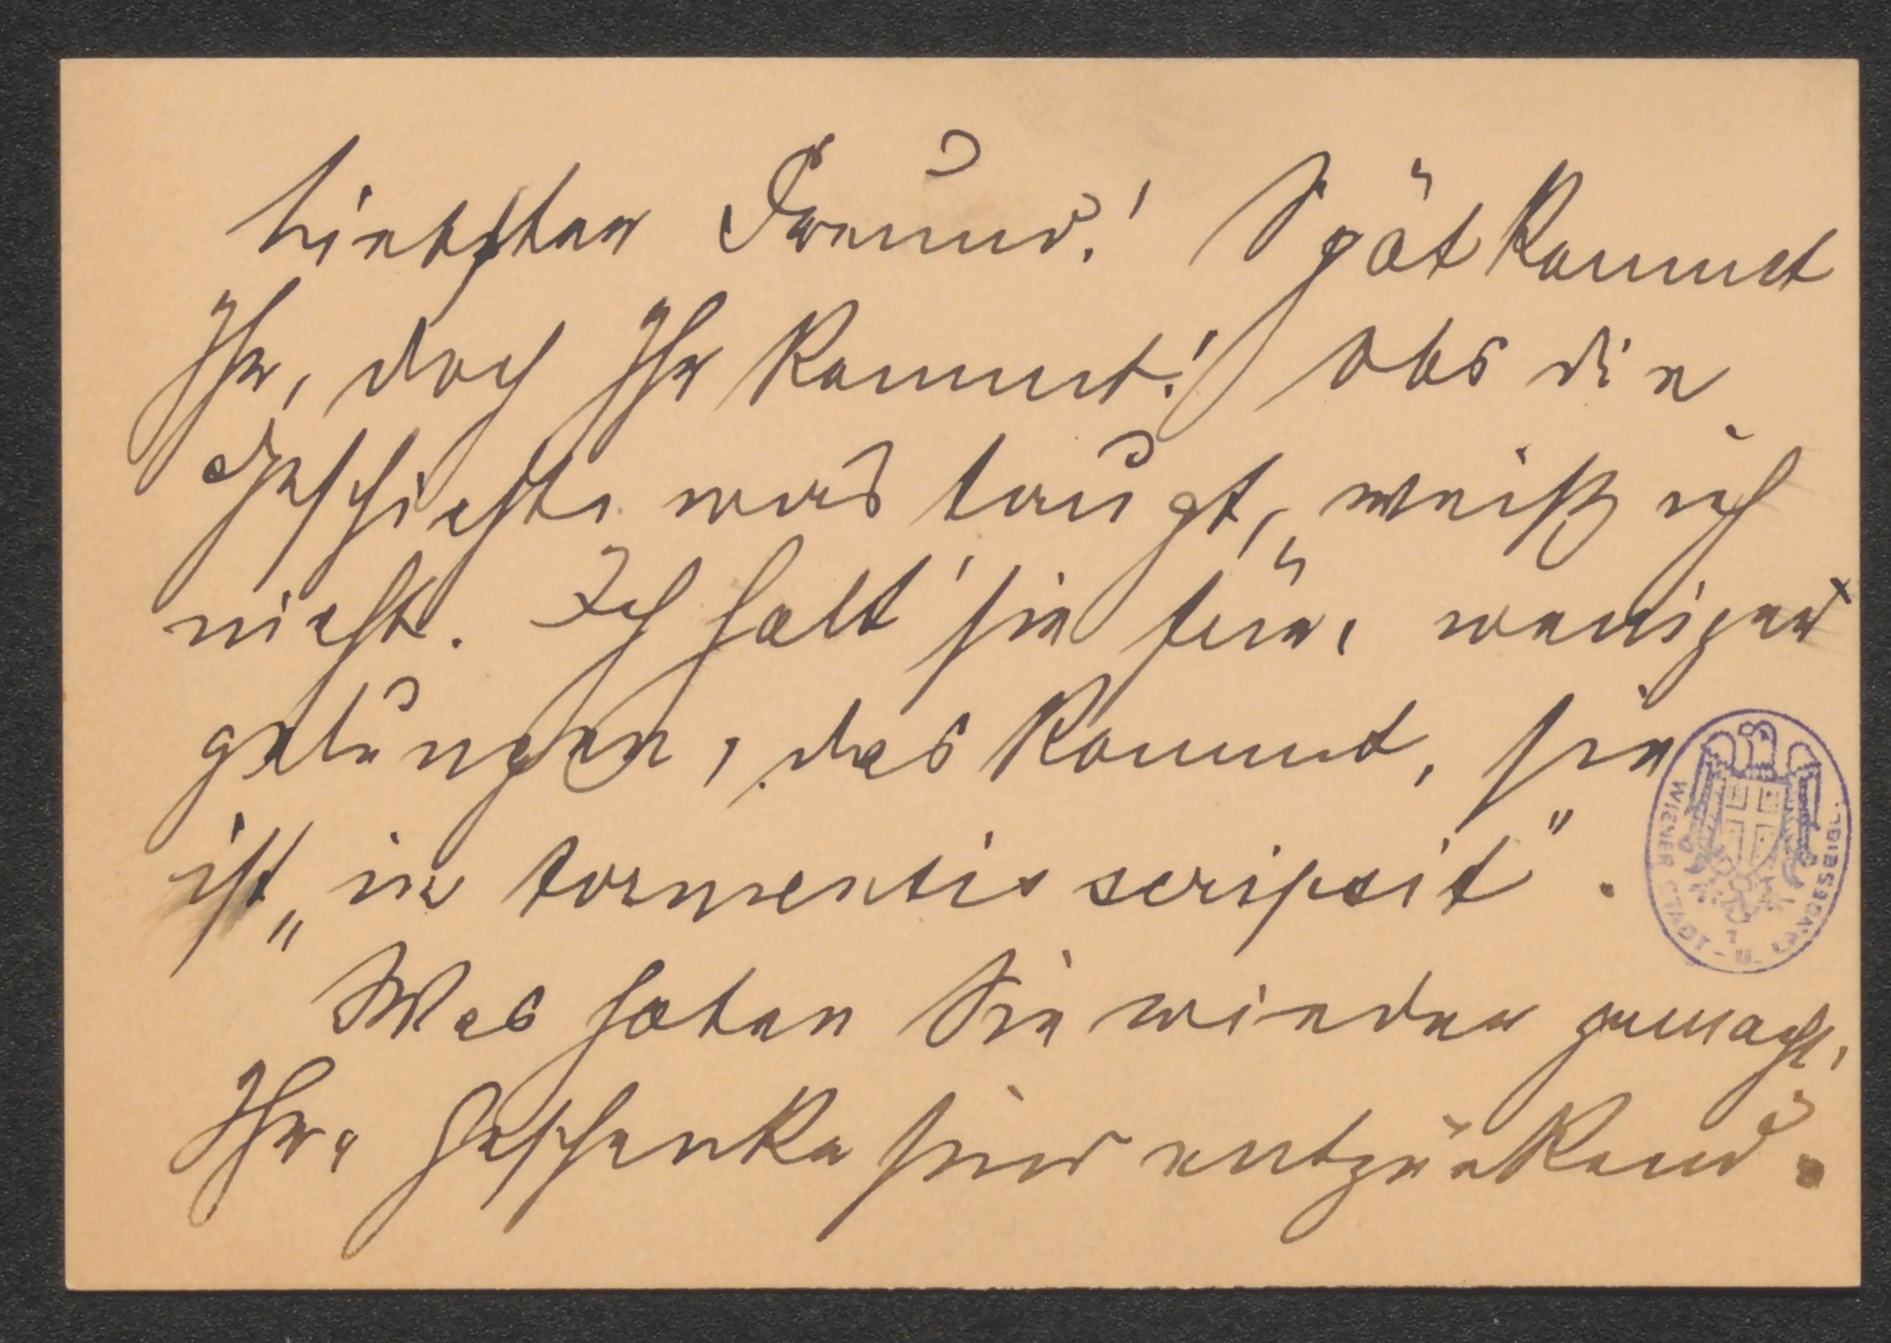 Liebster Freund! Spät kommt
Ihr, doch Ihr kommt! Obs die
Geschichte was taugt, weiß ich
nicht. Ich halt' sie für, weniger
gelungen, das kommt, sie
ist „in tormentis scripsit".
Was haben Sie wieder gemacht,
Ihre Geschenke sind entzückend.
WIENER STADT - U. LANDESBIBL.